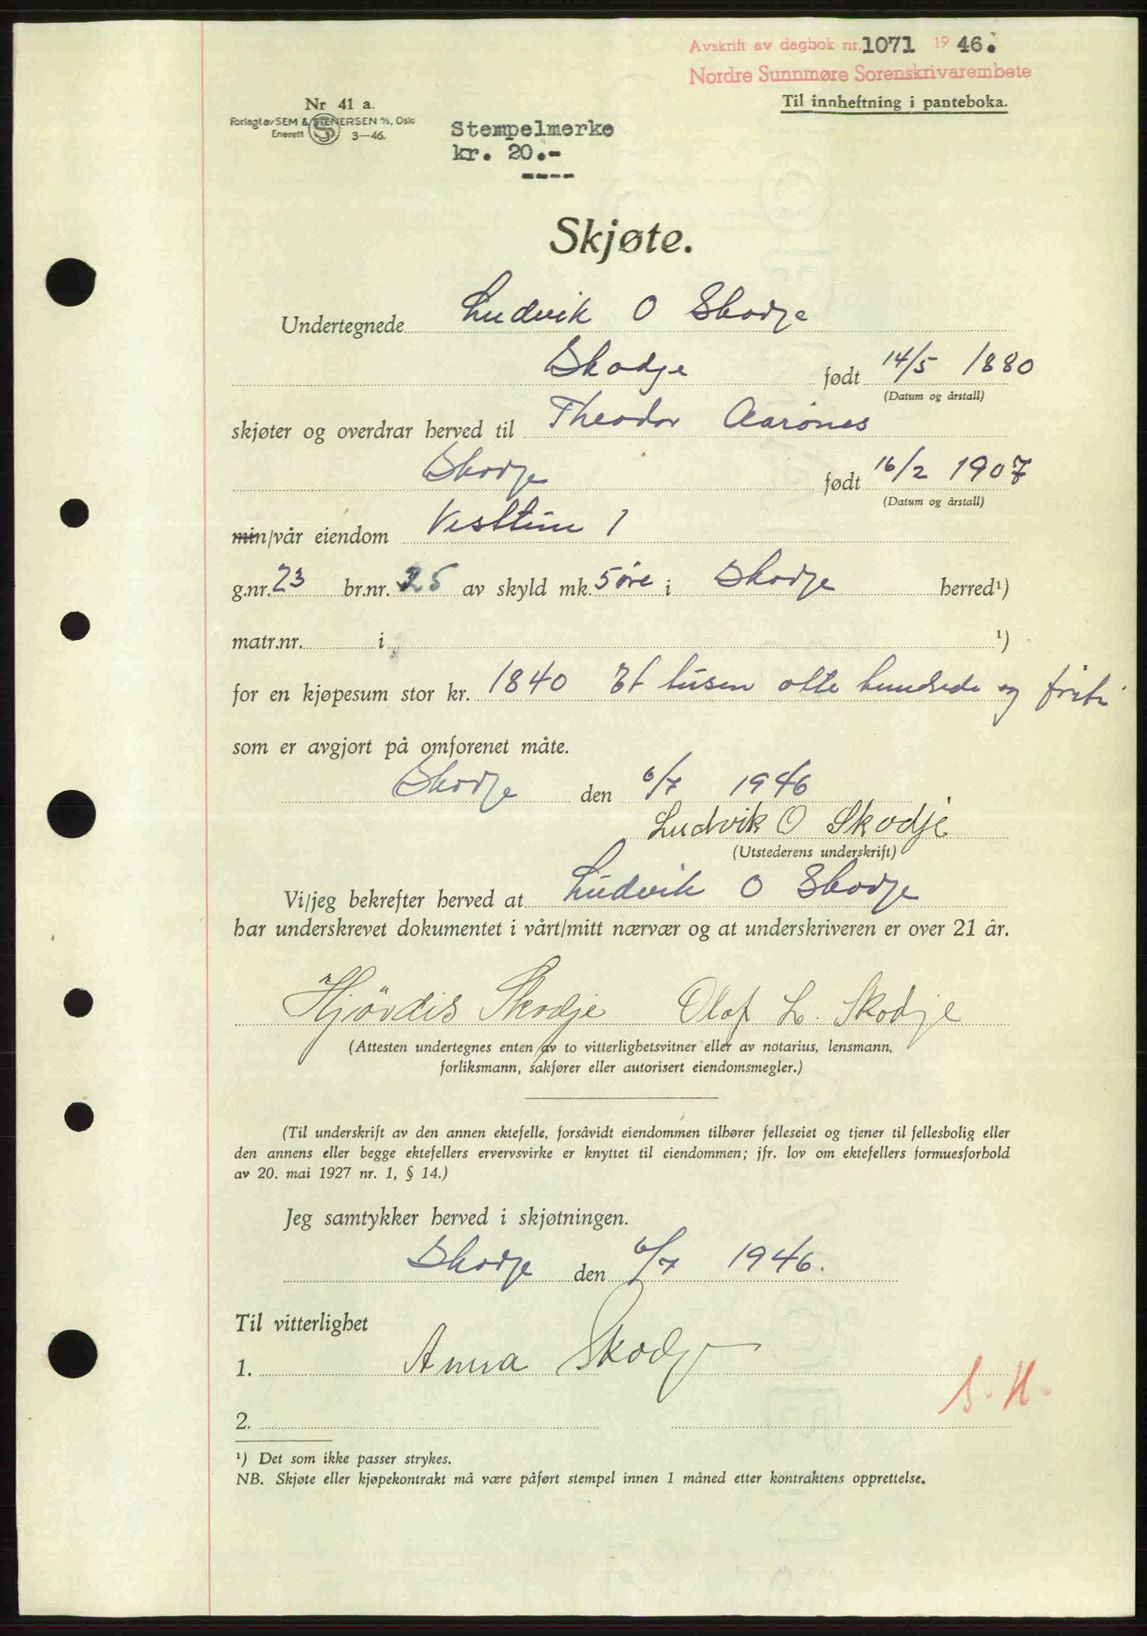 Avskrift av dagbok nr. 1071 1946.
Nordre Sunnmøre Sorenskrivarembete
Til innheftning i panteboka.
Nr 41 a.
Forlagt av SEM & STENERSEN A/S, Oslo
Enerett 3—46.
Stempelmerke
kr. 20.-
----
Skjøte.
Undertegnede Ludvik O Skodje
Skodje født 14/5 1880
(Datum og årstall)
skjøter og overdrar herved til Theodor Aarönes
Skodje født 16/2 1907
(Datum og årstall)
min/vår eiendom 1
g.nr. 23 br.nr. 25 av skyld mk. 5 øre i Skodje herred¹)
matr.nr. i ¹)
for en kjøpesum stor kr. 1840 Et tusen otte hundrede og
som er avgjort på omforenet måte.
Skodje den 6/7 1946
Ludvik O Skodje
(Utstederens underskrift)
Vi/jeg bekrefter herved at Ludvik O Skodje
har underskrevet dokumentet i vårt/mitt nærvær og at underskriveren er over 21 år.
Hjördis Skodje Olaf L. Skodje
(Attesten undertegnes enten av to vitterlighetsvitner eller av notarius, lensmann,
forliksmann, sakfører eller autorisert eiendomsmegler.)
(Til underskrift av den annen ektefelle, forsåvidt eiendommen tilhører felleseiet og tjener til fellesbolig eller
den annens eller begge ektefellers ervervsvirke er knyttet til eiendommen; jfr. lov om ektefellers formuesforhold
av 20. mai 1927 nr. 1, § 14.)
Jeg samtykker herved i skjøtningen.
Skodje den 6/7 1946.
Til vitterlighet
1. Anna Skodje
2.
¹) Det som ikke passer strykes.
NB. Skjøte eller kjøpekontrakt må være påført stempel innen 1 måned etter kontraktens opprettelse.